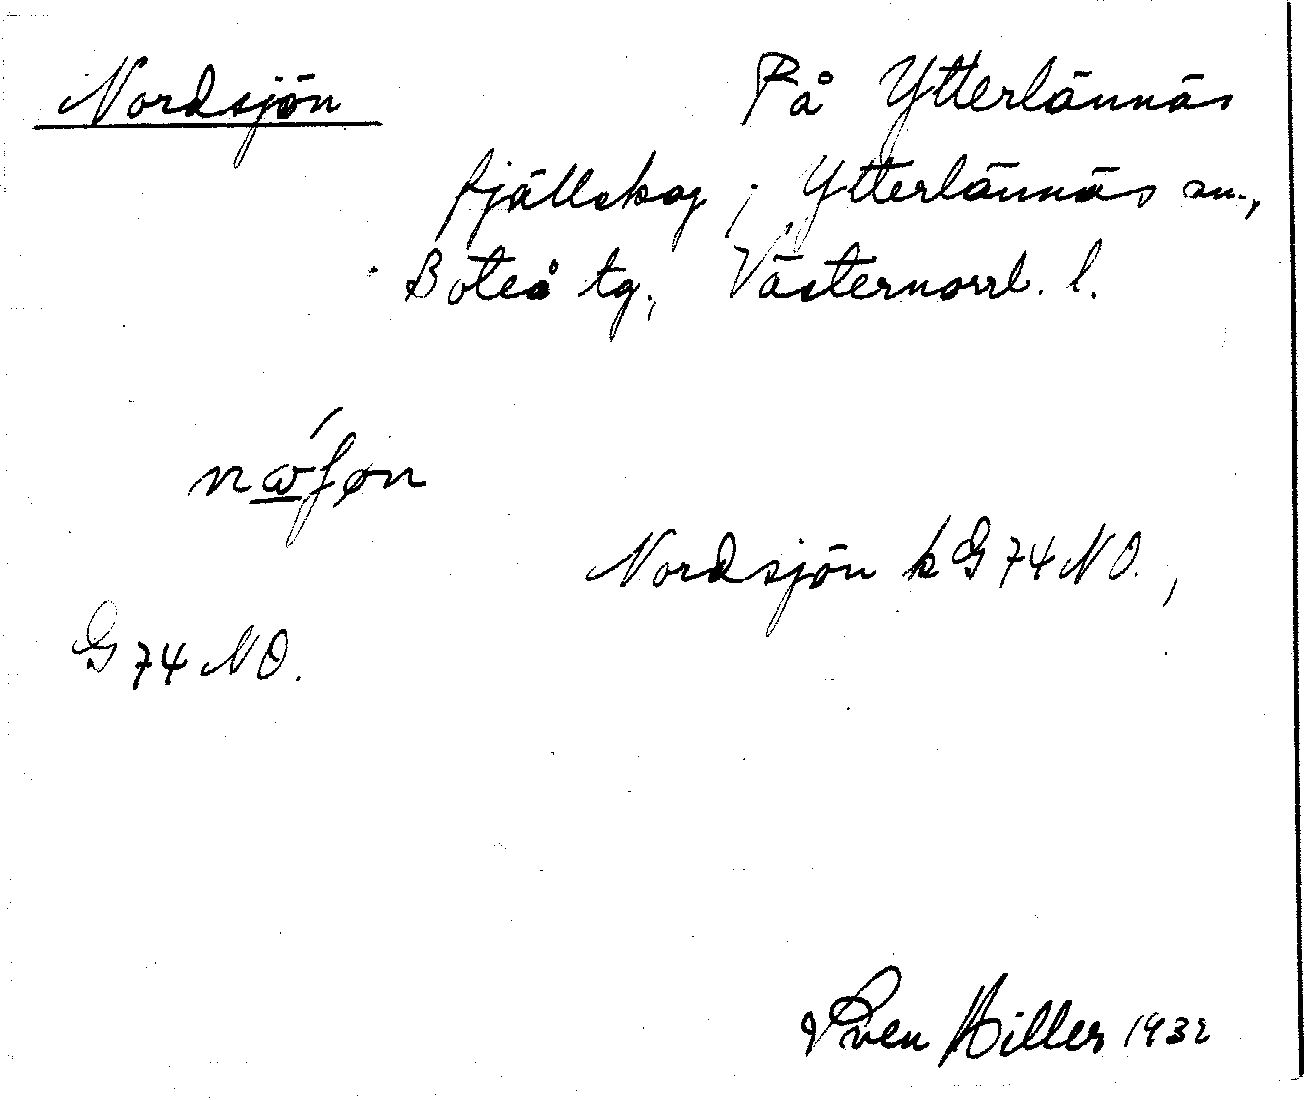 Nordsjön På Ytterlännäs
fjällskog, Ytterlännäs sn.,
Boteå tg., Västernorrl. l.
nώ̲ʃøn
Nordsjön k G 74 NO.,
G 74 NO.
Sven Hiller 1932